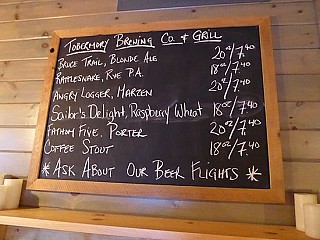 Tobermory Brewing Co. & Grill
Bruce Trail, Blonde Ale 20oz/7.40
Rattlesnake, Rye P.A. 18oz/7.40
Angry Logger, Marzen 20oz/7.40
Sailor's Delight, Raspberry Wheat 18oz/7.40
Fathom Five, Porter 20oz/7.40
Coffee Stout 18oz/7.40
* Ask About Our Beer Flights *